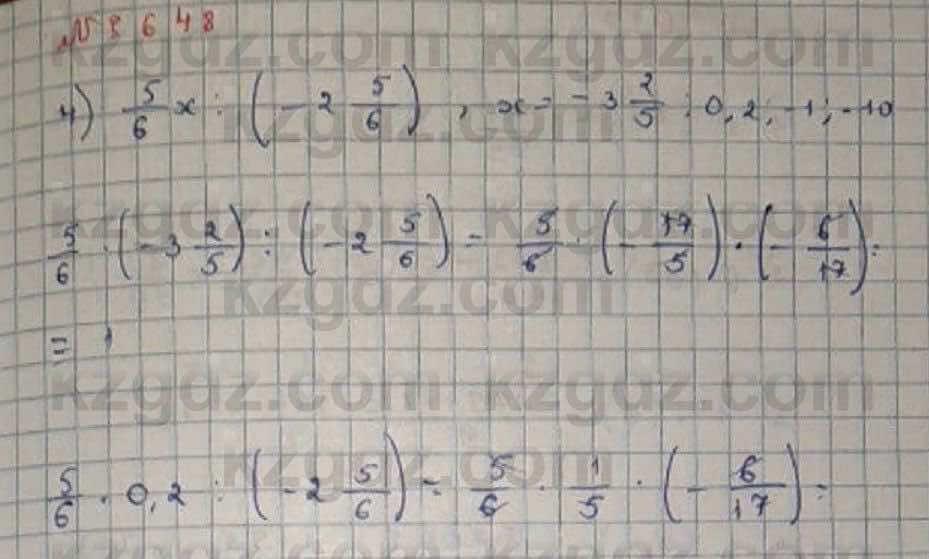 № 3648
4) 5/6 x : (- 2 5/6), x = - 3 2/5; 0,2; -1; -10
5/6 · (- 3 2/5) : (- 2 5/6) = 5/6 · (- 17/5) · (- 6/17) =
= 1
5/6 · 0,2 : (- 2 5/6) = 5/6 · 1/5 · (- 6/17) =
kzgdz.com kzgdz.com
kzgdz.com
kzgdz.com kzgdz.com
kzgdz.com
kzgdz.com kzgdz.com
kzgdz.com